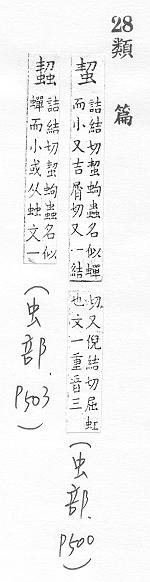 28 類篇
蛪 詰結切蛪蚼蟲名似蟬
而小又吉屑切又一結
切又倪結切屈虹
也文一重音三
(虫部. P500)
詰結切蛪蚼蟲名似
蟬而小或从䖵文一
(虫部. P503)